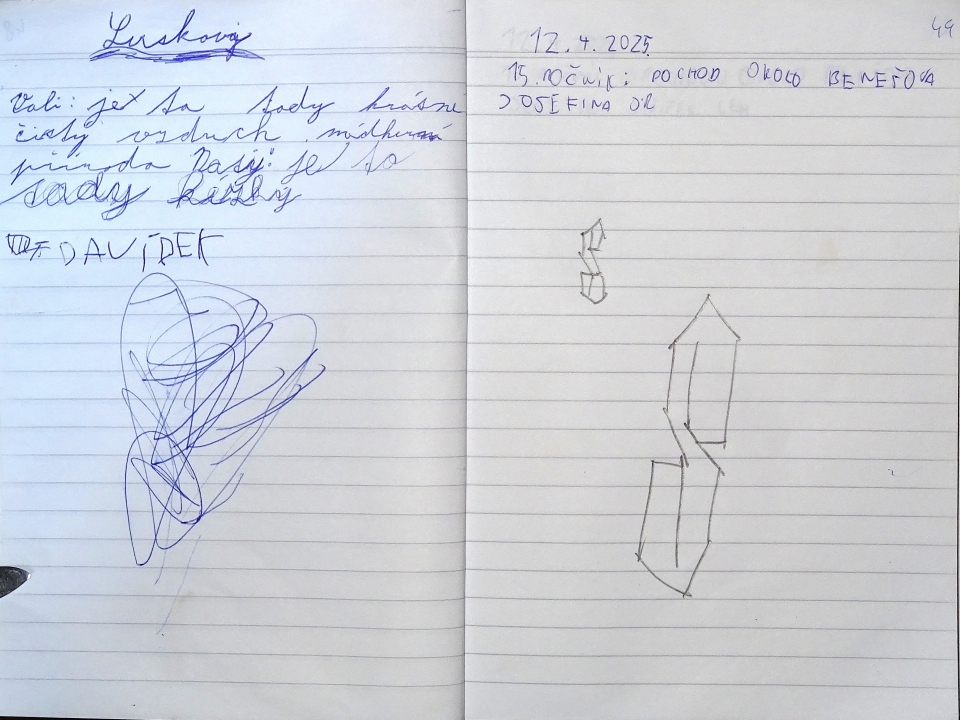 Luskovi
Vali: je to tady krásne
čistý vzduch nádherná
příroda Dasý: je to
tady hézky
DAVÍDEK
49
12.4.2025
15.ROČNÍK: POCHOD OKOLO BENEŠOVA
JOSEFINA OR